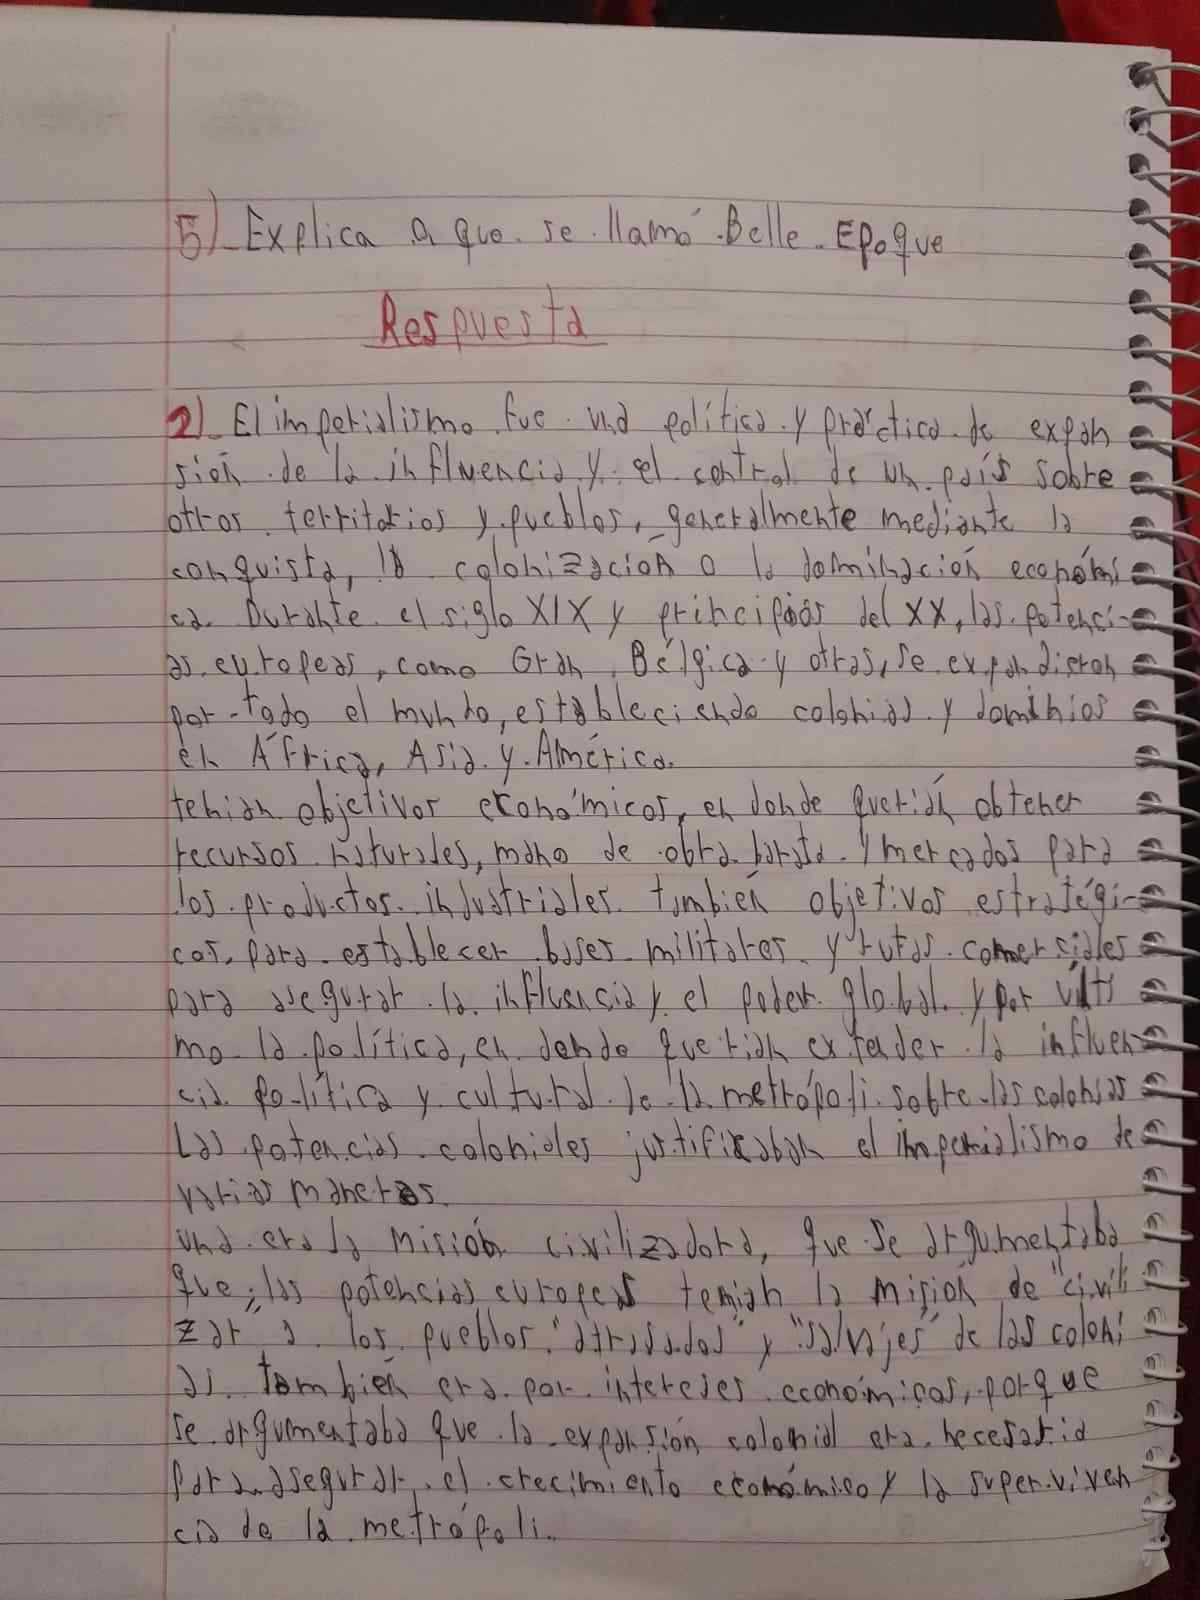 5) Explica a que se llamó Belle Epoque
Respuesta
2) El imperialismo fue una política y práctica de expan
sión de la influencia y el control de un país sobre
otros territorios y pueblos, generalmente mediante la
conquista, la colonización o la dominación económi
ca. Durante el siglo XIX y principios del XX, las potenci-
as europeas, como Gran, Bélgica y otras, se expandieron
por todo el mundo, estableciendo colonias y dominios
en África, Asia y América.
tenian objetivos económicos, en donde querián obtener
recursos naturales, mano de obra barata y mercados para
los productos industriales. también objetivos estratégi-
cos, para establecer bases militares y rutas comerciales
para asegurar la influencia y el poder global. y por ulti
mo la política, en donde querian extender la influen
cia política y cultural de la metrópoli sobre las colonias
Las potencias coloniales justificaban el imperialismo de
varias maneras.
una era la misión civilizadora, que se argumentaba
que, las potencias europeas tenian la misión de "civili
zar" a los pueblos "atrasados" y "salvajes" de las coloni
as. también era por intereses económicos, porque
se argumentaba que la expansión colonial era necesaria
para asegurar el crecimiento económico y la superviven
cia de la metrópoli.